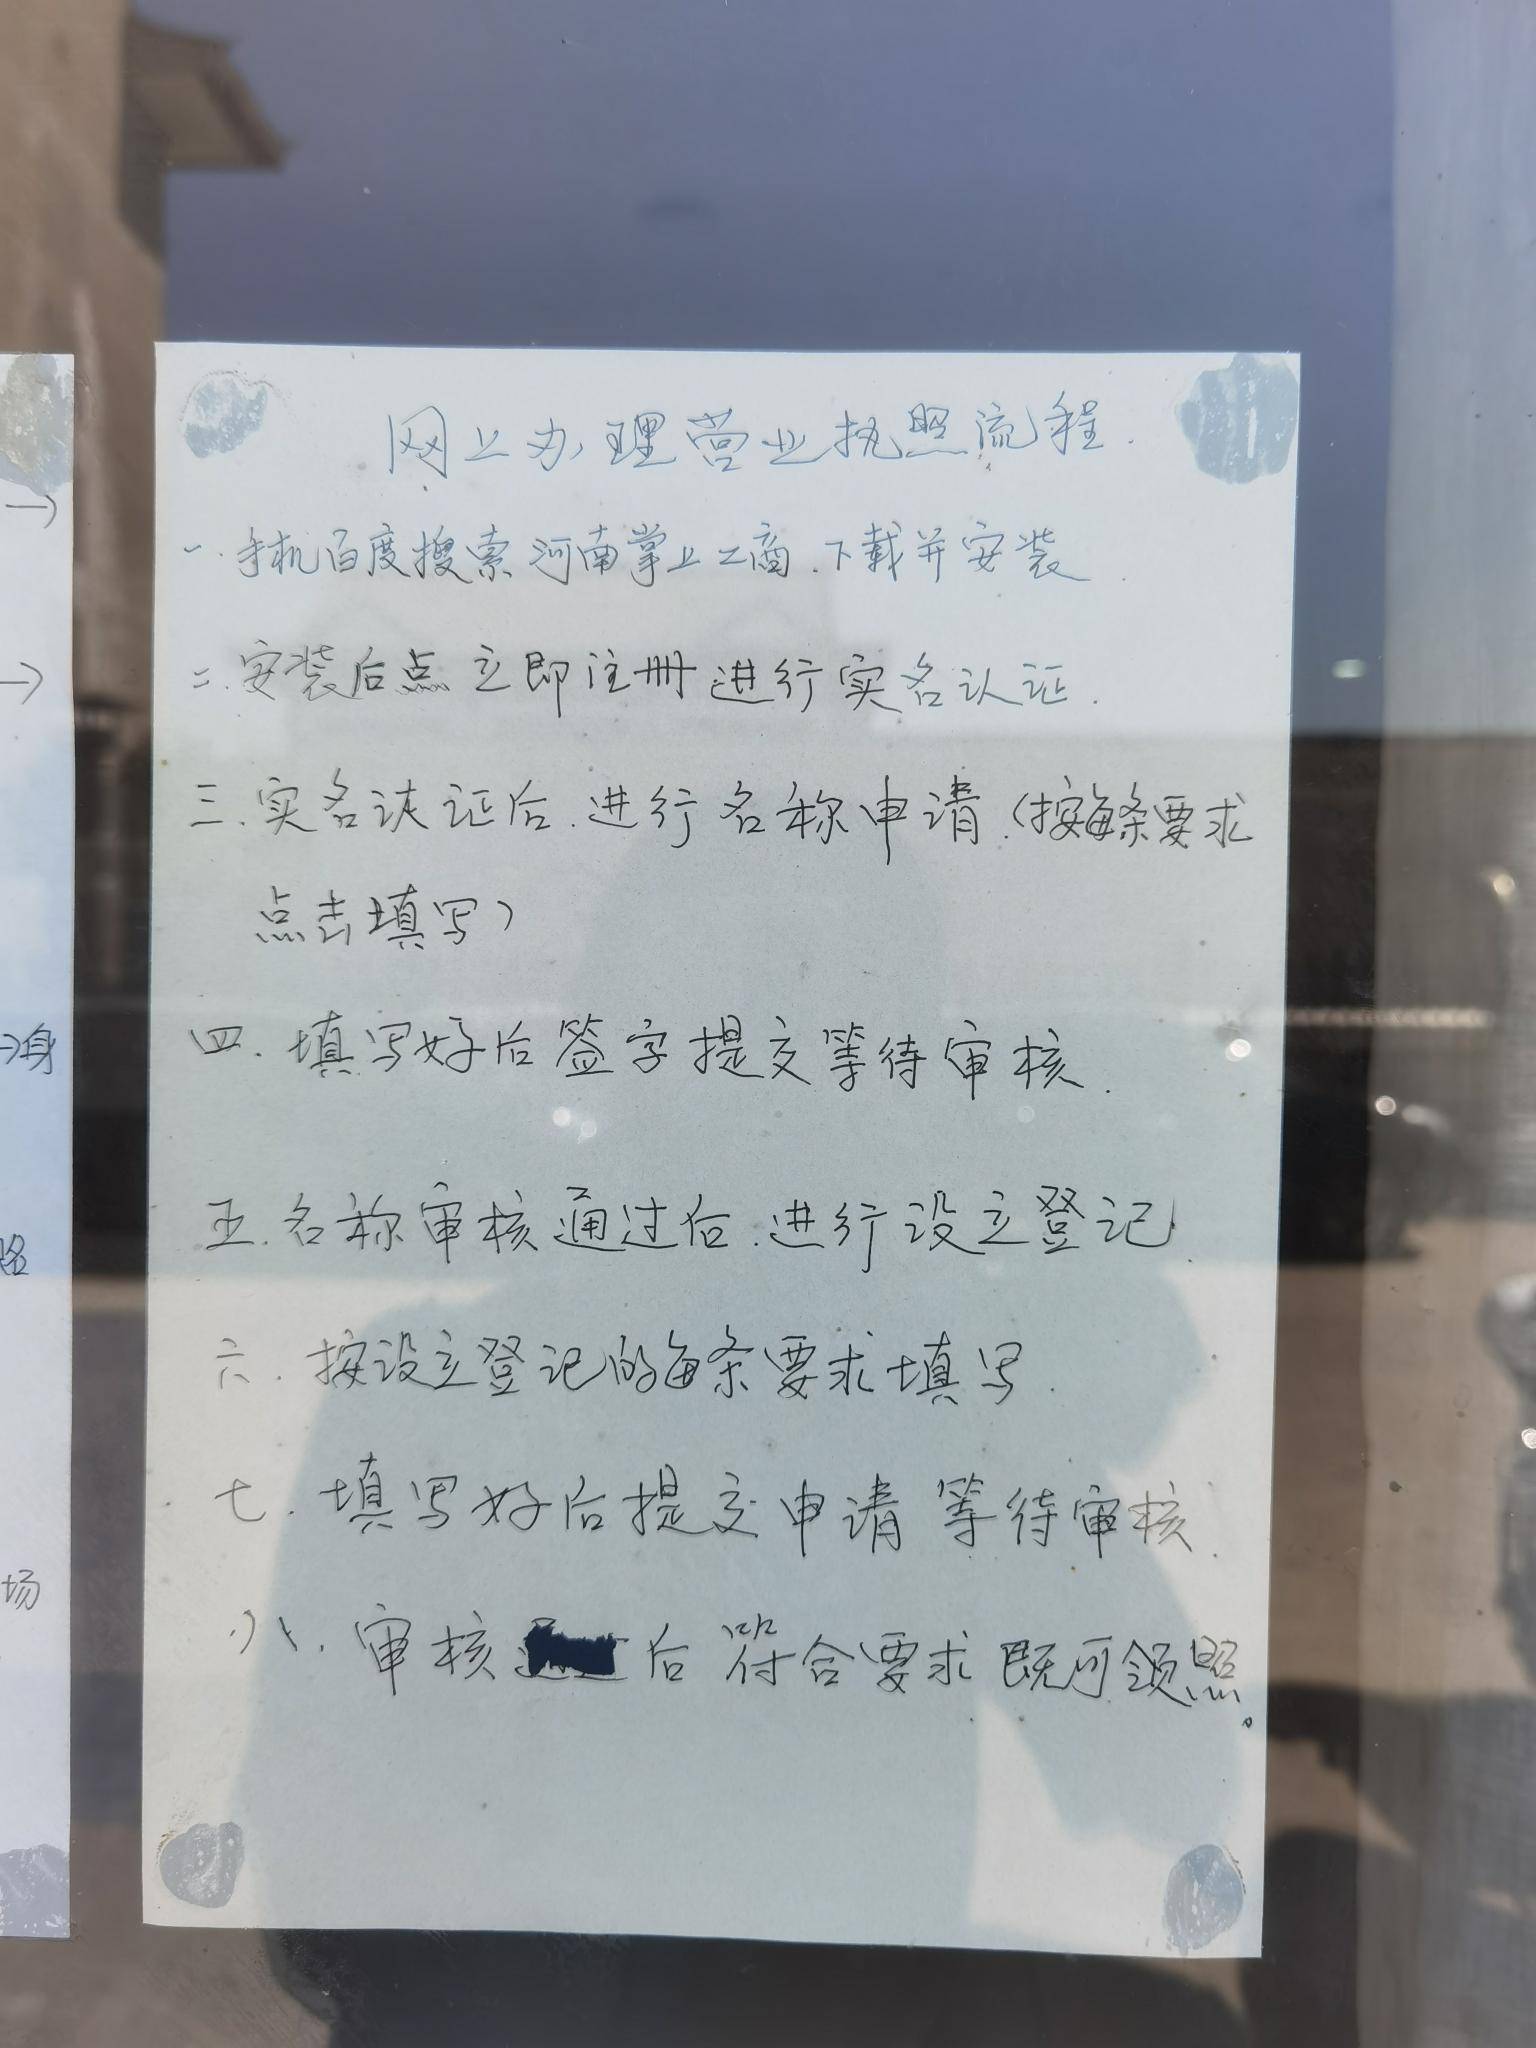 网上办理营业执照流程.
一.手机百度搜索河南掌上工商.下载并安装.
二.安装后点立即注册进行实名认证.
三.实名认证后.进行名称申请.(按每条要求
点击填写)
四.填写好后签字提交等待审核.
五.名称审核通过后.进行设立登记.
六.按设立登记的每条要求填写.
七.填写好后提交申请等待审核.
八.审核后符合要求既可领照。
身
场